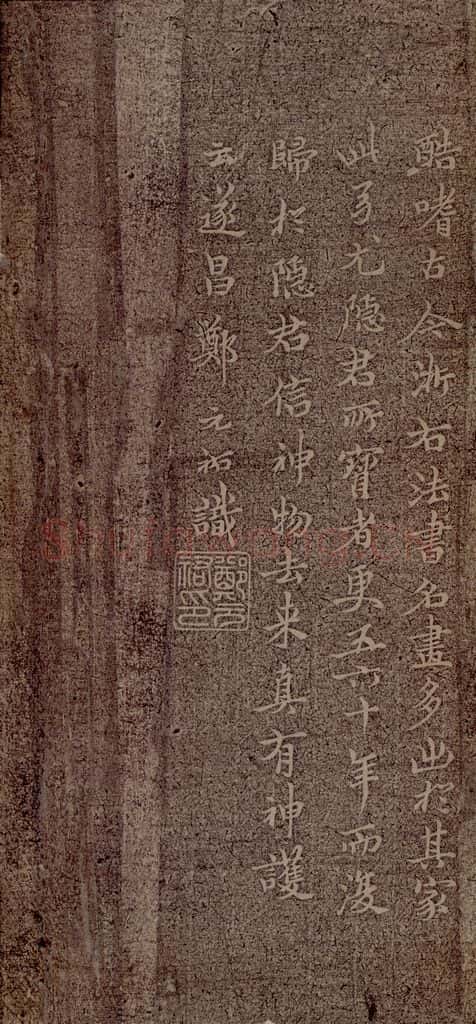 酷嗜古今浙右法書名畫多出於其家
此弓尤隐君所寶者更五六十年而復
歸於隐君信神物去来真有神護
云遂昌鄭元祐識
鄭元祐印